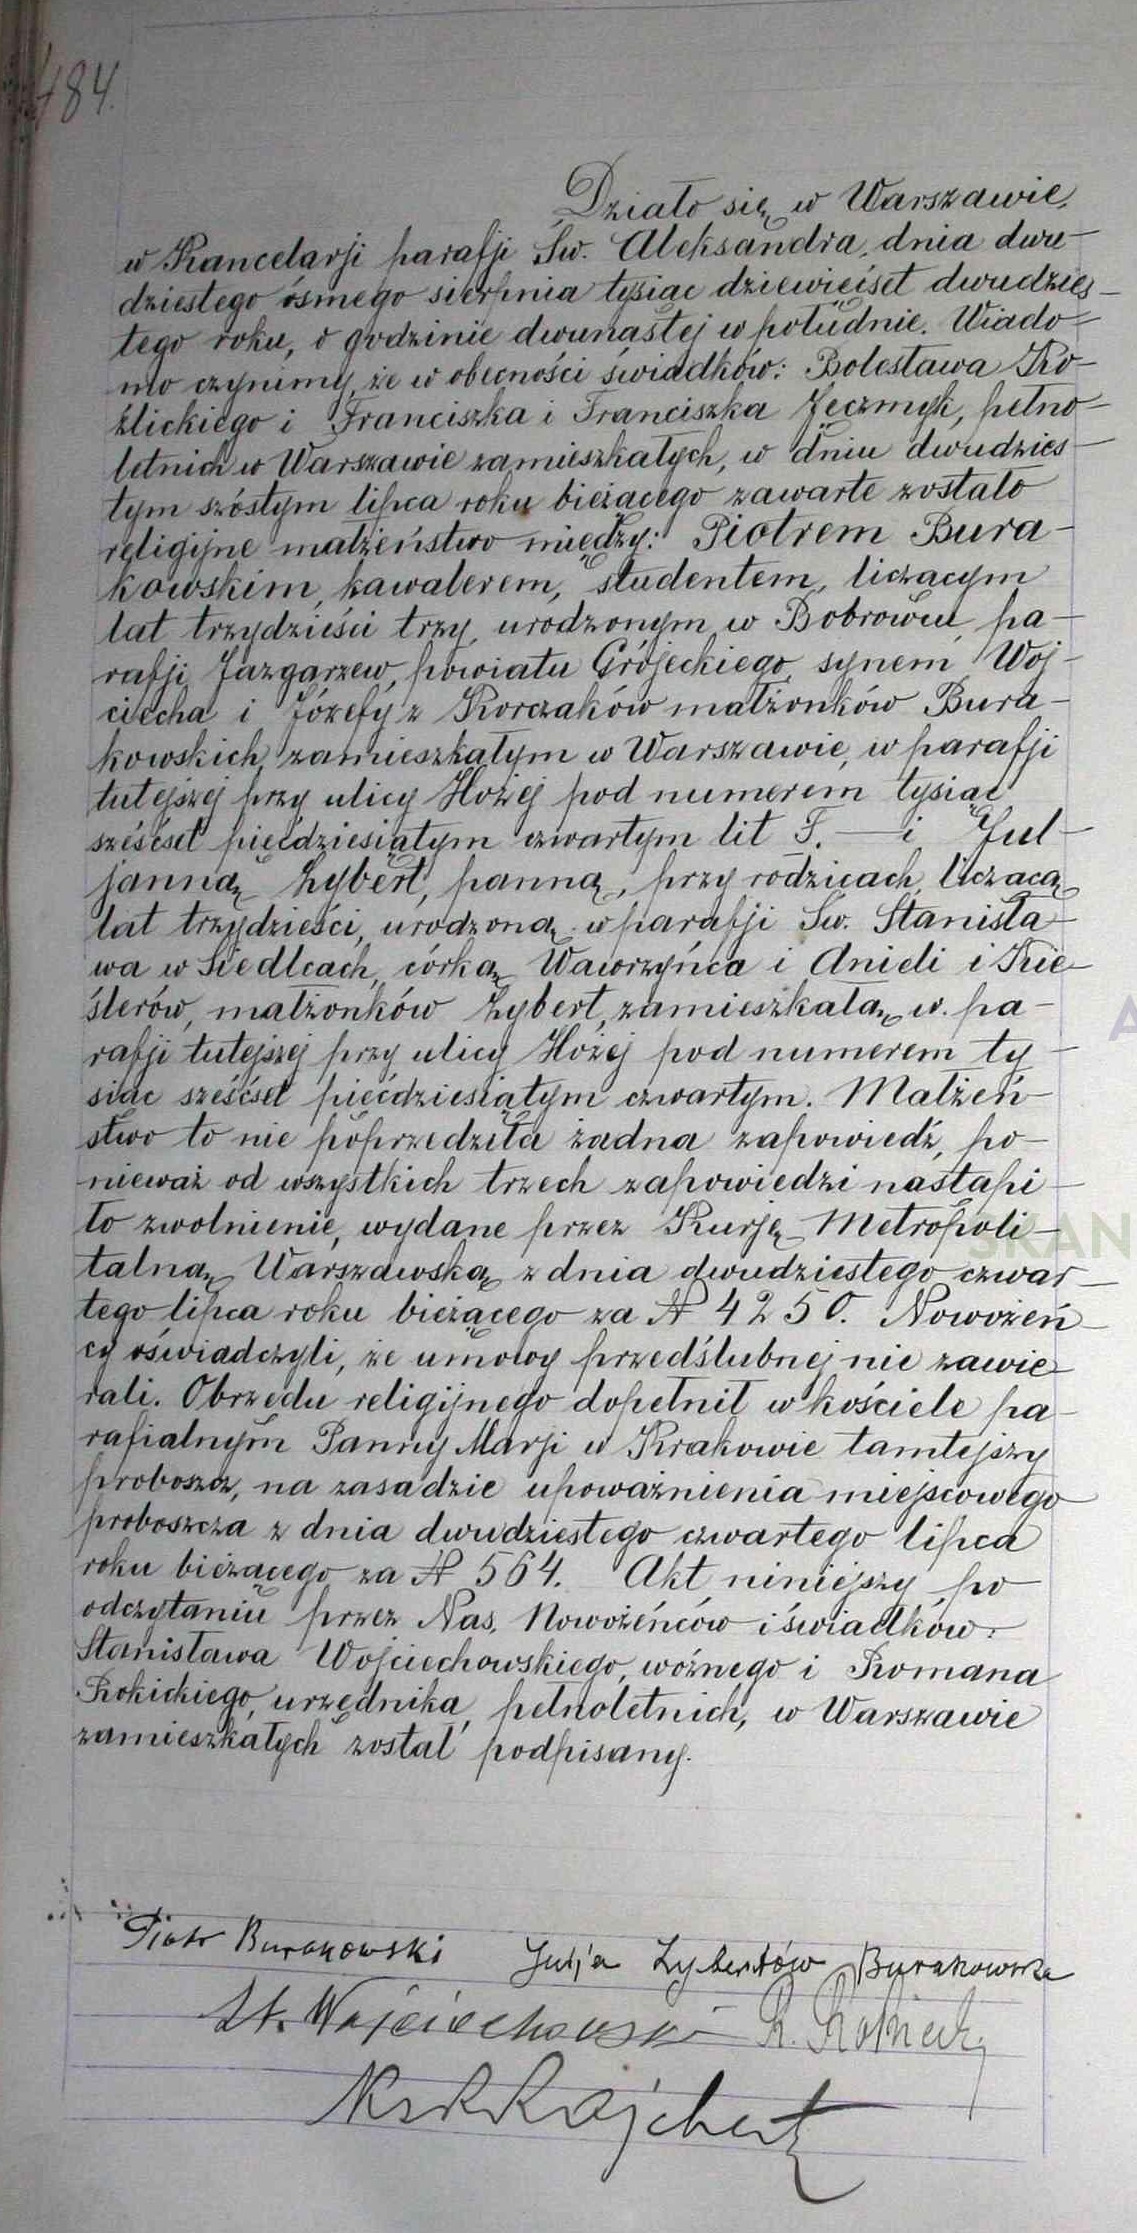 484.
Działo się w Warszawie,
w Kancelarji parafji Św. Aleksandra, dnia dwu-
dziestego ósmego sierpnia tysiąc dziewięćset dwudzies-
tego roku, o godzinie dwunastej w południe. Wiado-
mo czynimy, że w obecności świadków: Bolesława Ko-
źlickiego i Franciszka i Franciszka Jęczmyk, pełno-
letnich w Warszawie zamieszkałych, w dniu dwudzies-
tym szóstym lipca roku bieżącego zawarte zostało
religijne małżeństwo między: Piotrem Bura-
kowskim, kawalerem, studentem, liczącym
lat trzydzieści trzy, urodzonym w Bobrowcu, pa-
rafji Jazgarzew, powiatu Grójeckiego, synem Woj-
ciecha i Józefy z Korczaków małżonków Bura-
kowskich, zamieszkałym w Warszawie, w parafji
tutejszej przy ulicy Hożej pod numerem tysiąc
sześćset pięćdziesiątym czwartym lit F. — i Jul-
janną Lybert, panną, przy rodzicach, liczącą
lat trzydzieści, urodzoną w parafji Św. Stanisła-
wa w Siedlcach, córką Wawrzyńca i Anieli i Kie-
ślerów, małżonków Lybert, zamieszkałą w pa-
rafji tutejszej przy ulicy Hożej pod numerem ty-
siąc sześćset pięćdziesiątym czwartym. Małżeń-
stwo to nie poprzedziła żadna zapowiedź, po-
nieważ od wszystkich trzech zapowiedzi nastąpi-
ło zwolnienie, wydane przez Kurję Metropoli-
talną Warszawską z dnia dwudziestego czwar-
tego lipca roku bieżącego za № 4250. Nowożeń-
cy oświadczyli, że umowy przedślubnej nie zawie-
rali. Obrzędu religijnego dopełnił w kościele pa-
rafialnym Panny Marji w Krakowie tamtejszy
proboszcz, na zasadzie upoważnienia miejscowego
proboszcza z dnia dwudziestego czwartego lipca
roku bieżącego za № 564. Akt niniejszy po
odczytaniu przez Nas, Nowożeńców i świadków:
Stanisława Wojciechowskiego, woźnego i Romana
Rokickiego, urzędnika, pełnoletnich, w Warszawie
zamieszkałych został podpisany.
Piotr Burakowski Julja Lybertów Burakowska
St. Wojciechowski R. Rokicki
SKAN
A